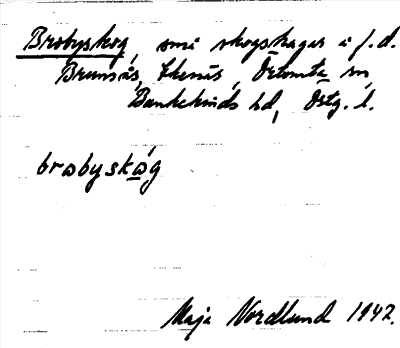 Brobyskog, små skogshagar i f.d.
Brunsås, Ekenäs, Örtomta sn,
Bankekinds hd, Östg. l.
brobyskóg
Maja Nordlund 1942.